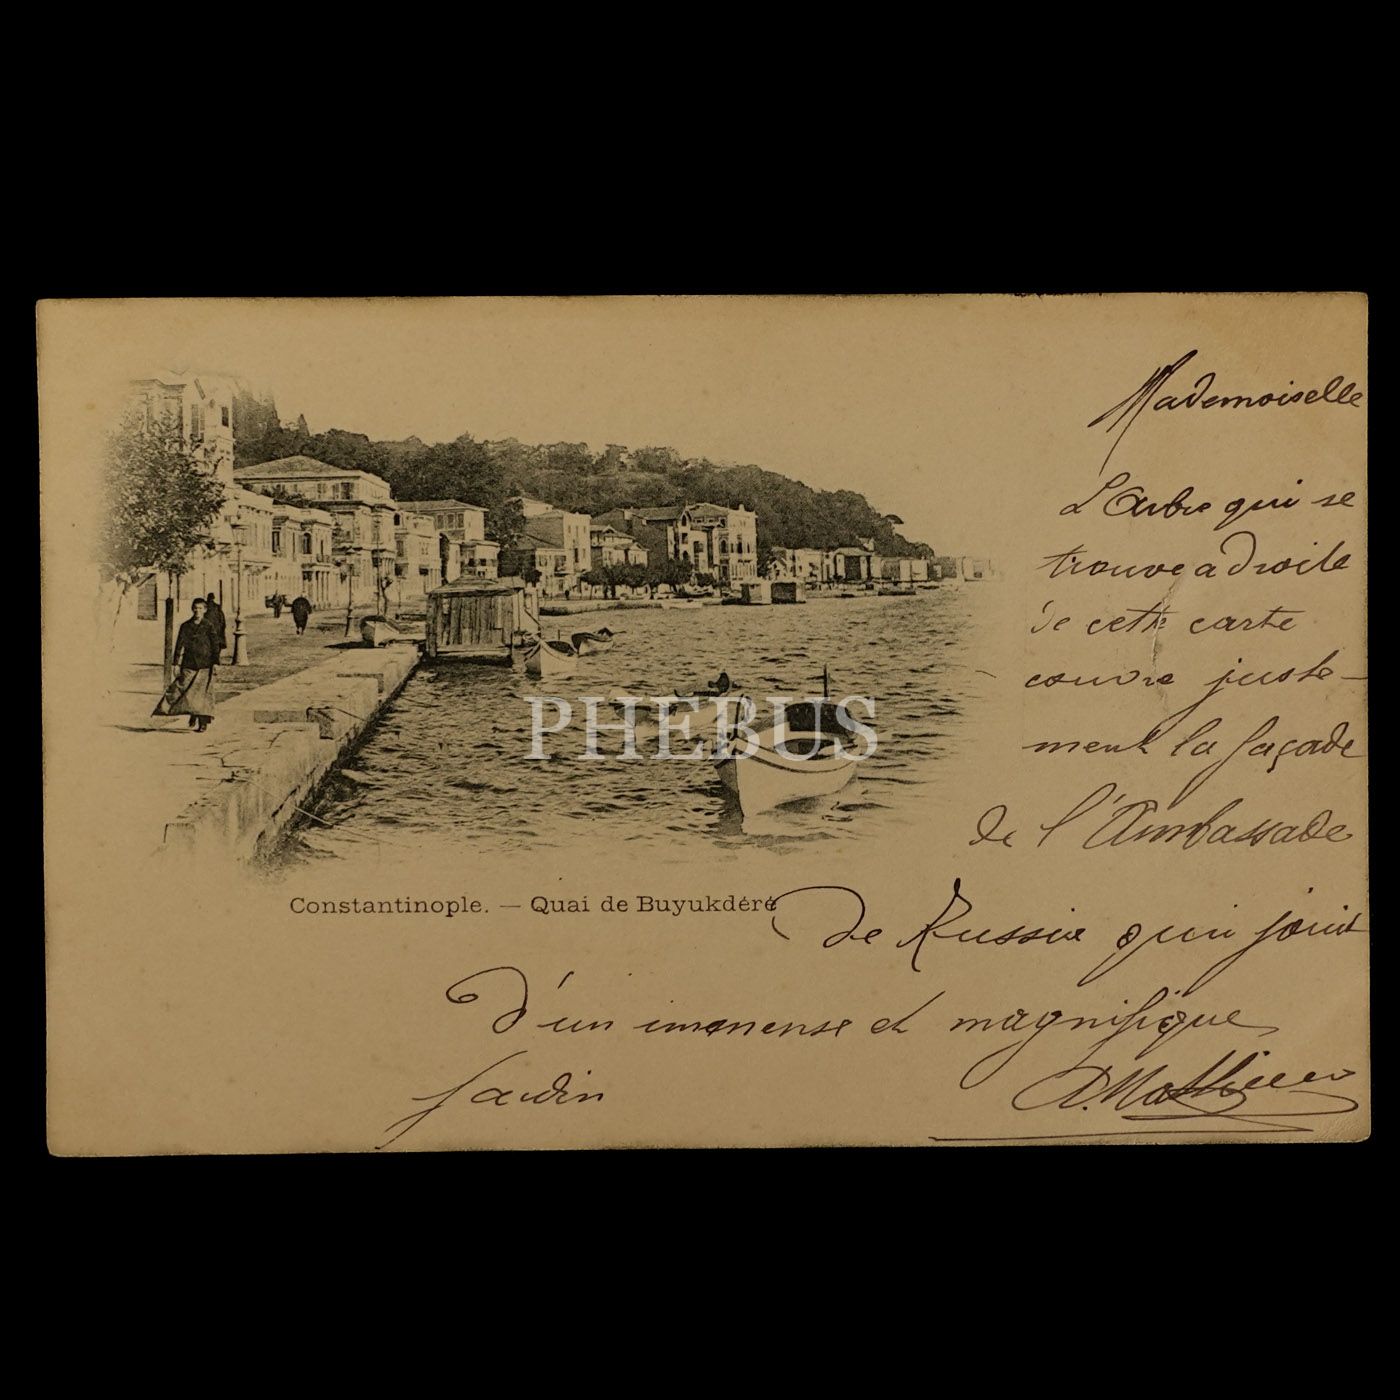 Mademoiselle
L'Arbre qui se
trouve a droite
de cette carte
couvre juste-
ment la façade
de l'Ambassade
Constantinople. — Quai de Buyukdéré
de Russie qui jouit
d'un immense et magnifique
Jardin
A. Mathieu
PHEBUS